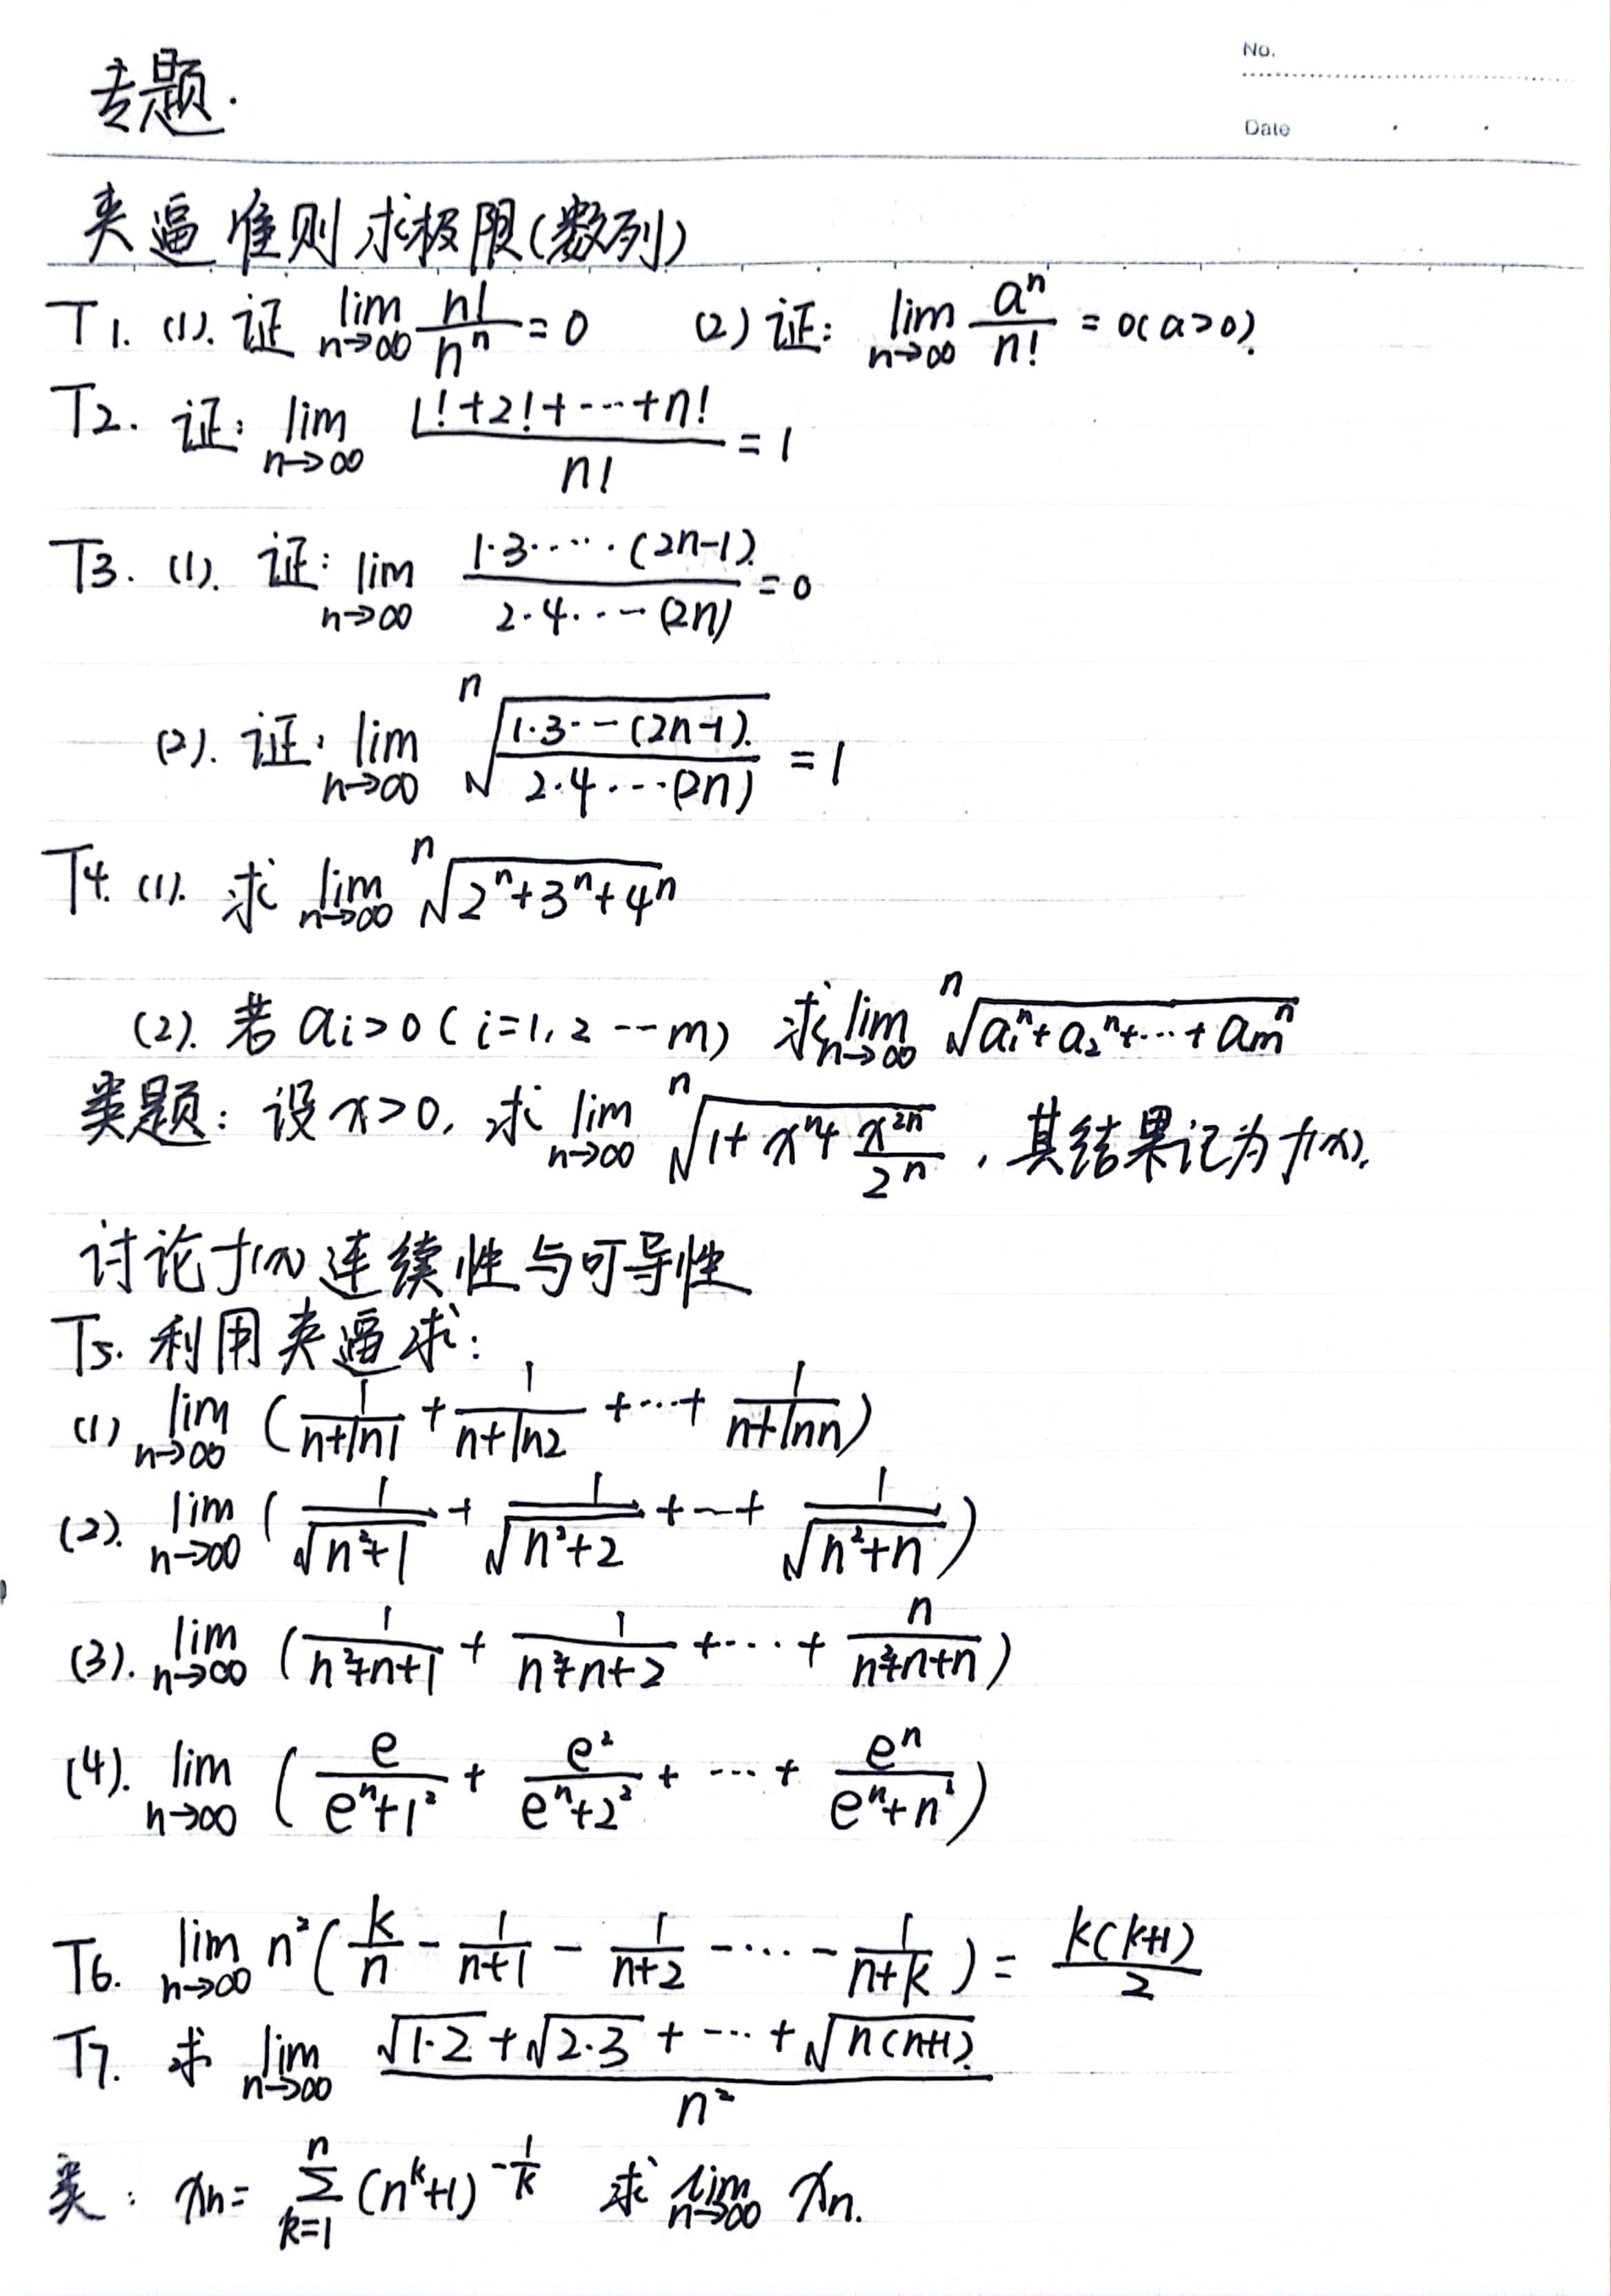 No.
专题.
Date
夹逼准则求极限(数列)
T1. (1). 证 lim_{n→∞} n!/n^n = 0 (2) 证: lim_{n→∞} a^n/n! = 0(a>0).
T2. 证: lim_{n→∞} (1!+2!+⋯+n!)/n! = 1
T3. (1). 证: lim_{n→∞} (1·3·⋯·(2n-1))/(2·4·⋯(2n)) = 0
(2). 证: lim_{n→∞} ⁿ√((1·3⋯(2n-1))/(2·4·⋯(2n))) = 1
T4. (1). 求 lim_{n→∞} ⁿ√(2^n+3^n+4^n)
(2). 若 a_i>0 (i=1,2⋯m) 求 lim_{n→∞} ⁿ√(a_1^n+a_2^n+⋯+a_m^n)
类题: 设x>0, 求 lim_{n→∞} ⁿ√(1+x^n+x^{2n}/2^n), 其结果记为f(x).
讨论f(x)连续性与可导性
T5. 利用夹逼求:
(1) lim_{n→∞} (1/(n+ln1) + 1/(n+ln2) +⋯+ 1/(n+lnn))
(2). lim_{n→∞} (1/√(n²+1) + 1/√(n²+2) +⋯+ 1/√(n²+n))
(3). lim_{n→∞} (1/(n²+n+1) + 1/(n²+n+2) +⋯+ n/(n²+n+n))
(4). lim_{n→∞} (e/(e^n+1²) + e²/(e^n+2²) + ⋯ + e^n/(e^n+n²))
T6. lim_{n→∞} n²(k/n - 1/(n+1) - 1/(n+2) -⋯- 1/(n+k)) = k(k+1)/2
T7. 求 lim_{n→∞} (√(1·2)+√(2·3)+⋯+√(n(n+1)))/n²
类: x_n = ∑_{k=1}^{n} (n^k+1)^{-1/k} 求 lim_{n→∞} x_n.